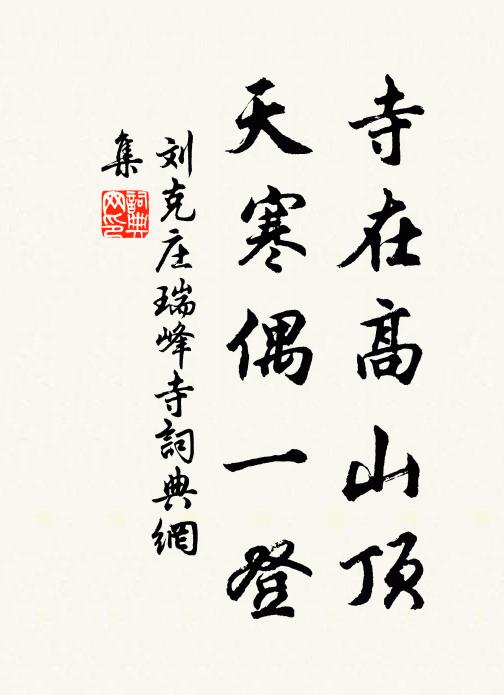 寺在高山顶
天寒偶一登
刘克庄瑞峰寺詞典網
集
詞典
网印